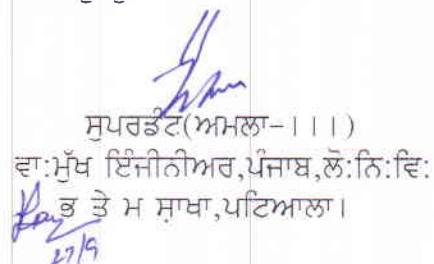 ਸੁਪਰਡੰਟ(ਅਮਲਾ-।।।)
ਵਾ:ਮੁੱਖ ਇੰਜੀਨੀਅਰ,ਪੰਜਾਬ,ਲੋ:ਨਿ:ਵਿ:
ਭ ਤੇ ਮ ਸ਼ਾਖਾ,ਪਟਿਆਲਾ।
27/9